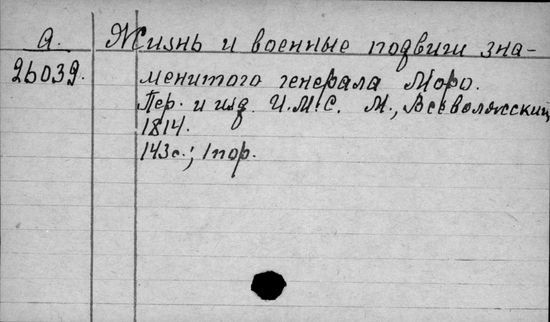 А. Жизнь и военные подвиги зна-
26039. менитого генерала Моро.
Пер. и изд. И.М.С. М., Всеволожский,
1814.
143с.; 1пор.